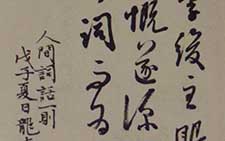 李後主眼
慨遂深
詞而為
人間詞話一則
戊子夏日龍